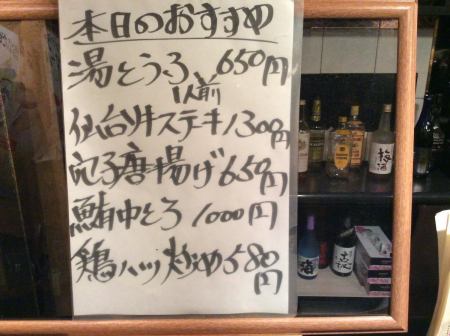 本日のおすすめ
湯とうふ 650円
1人前
仙台牛ステーキ 1300円
穴子唐揚げ 650円
鮪中とろ 1000円
鶏ハツ炒め 580円
梅酒